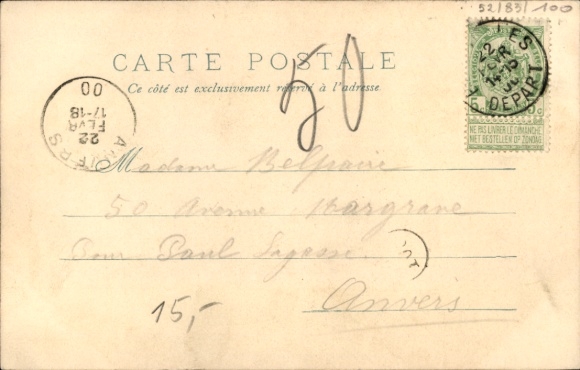 52/85/100
CARTE POSTALE
Ce côté est exclusivement réservé à l'adresse
50
LES
22
14-15
DEPART
5
NE PAS LIVRER LE DIMANCHE
NIET BESTELLEN OP ZONDAG
ANVERS
22
FEVR
17-18
00
Madame Belpaire
50 Avenue Margrave
Pour Paul
Anvers
15,-